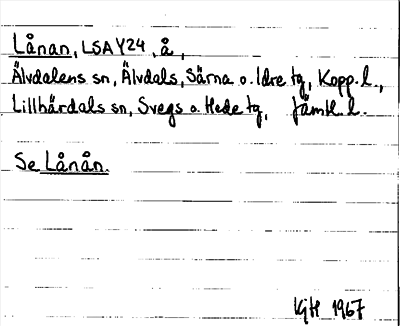 Lånan, LSA Y24, å,
Älvdalens sn, Älvdals, Särna o. Idre tg, Kopp. l.,
Lillhärdals sn, Svegs o. Hede tg, Jämtl. l.
Se Lånån.
KjH 1967